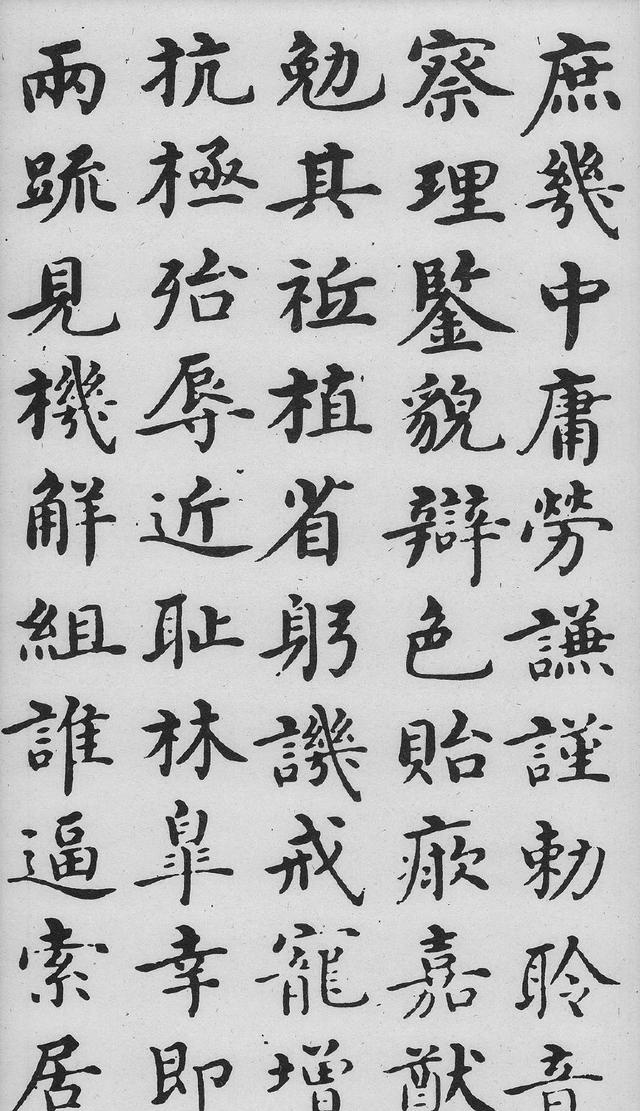 庶幾中庸勞謙謹勅聆音
察理鑒貌辯色貽厥嘉猷
勉其祗植省躬譏戒寵增
抗極殆辱近恥林皋幸即
兩疏見機解組誰逼索居